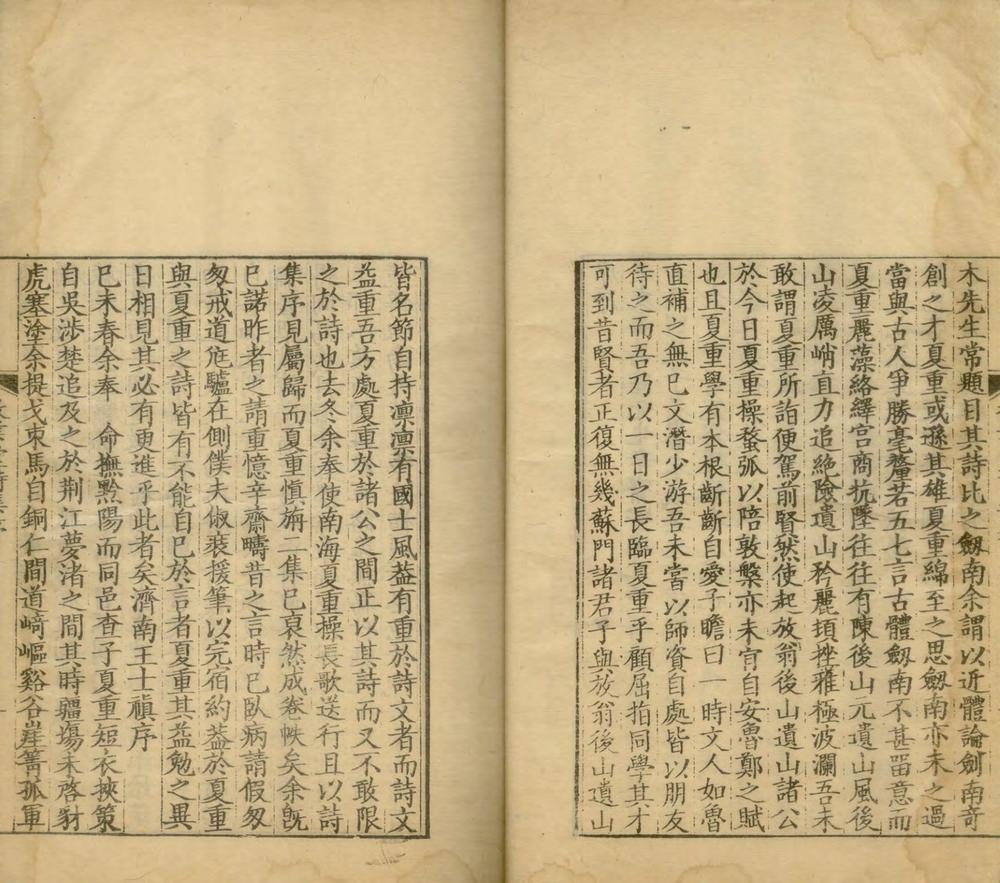 木先生常題目其詩比之劔南余謂以近體論劍南奇
創之才夏重或遜其雄夏重綿至之思劔南亦未之過
當與古人爭勝毫釐若五七言古體劔南不甚畱意而
夏重麗藻絡繹宮商抗墜往往有陳後山元遺山風後
山凌厲峭直力追絶險遺山矜麗頓挫雅極波瀾吾未
敢謂夏重所詣便駕前賢然使起放翁後山遺山諸公
於今日夏重操蝥弧以陪敦槃亦未肯自安魯鄭之賦
也且夏重學有本根斷斷自愛子瞻曰一時文人如魯
直補之無已文潛少游吾未嘗以師資自處皆以朋友
待之而吾乃以一日之長臨夏重乎顧屈指同學其才
可到昔賢者正復無幾蘇門諸君子與放翁後山遺山
皆名節自持凛凛有國士風葢有重於詩文者而詩文
益重吾方處夏重於諸公之間正以其詩而又不敢限
之於詩也去冬余奉使南海夏重操長歌送行且以詩
集序見屬歸而夏重慎旃二集已裒然成卷帙矣余旣
已諾昨者之請重憶辛齋疇昔之言時已臥病請假匆
匆戒道尫驢在側僕夫俶裝援筆以完宿約葢於夏重
與夏重之詩皆有不能自已於言者夏重其益勉之異
日相見其必有更進乎此者矣濟南王士禛序
已未春余奉 命撫黔陽而同邑查子夏重短衣挾策
自吳涉楚追及之於荆江夢渚之間其時疆塲未啓豺
虎塞塗余提戈束馬自銅仁間道﨑嶇谿谷崖箐孤軍